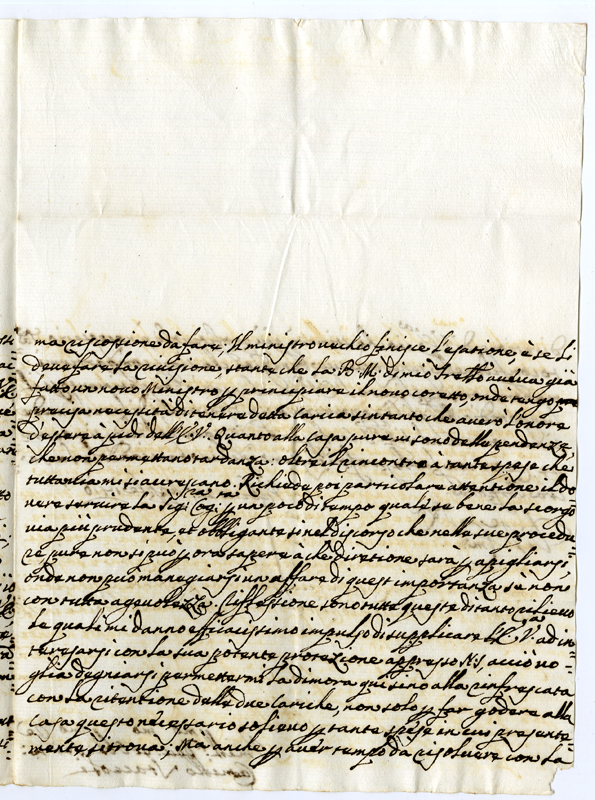 ma riscossione dà fare; Il ministro vechio finisce l'esatione, è se li
deve fare la revisione, stante che la B. M. di mio Fratto aveva già
fatto un novo Ministro p principiare il novo
precisa necessità di tenere detta Carica sintanto che averò l'onore
d'essere à piedi dell' E. V. Quanto alla Casa pure vi sono delle pendenze,
che non permettano tardanza: oltre il rincontro à tante spese che
tuttavia mi si acrescano. Richiede poi particolare attentione il do=
vere servire la Sig:ra Cog:ta p un poco di tempo quale se bene la scorgo
via piu prudente, et obbligante si nel discorso che nelle sue procedu=
re pure non si può p ora sapere à che diretione sarà p apigliarsi,
onde non può maneggiarsi un affare di quest' importanza se non
con tutta agevolezza. Riflessione sono tutte queste di tanto rilievo
le quali mi danno efficacissimo impulso di supplicare L'E. V.ra ad in=
teresarsi con la sua potente protezione appresso N. S. acciò vo=
glia degnarsi permettermi la dimora qui sino alla rinfrescata
con la ritentione delle due Cariche, non solo p far godere alla
Casa questo necessario solievo p tante spese in cui presente=
mente si trova; Ma anche p aver tempo da risolvere con la